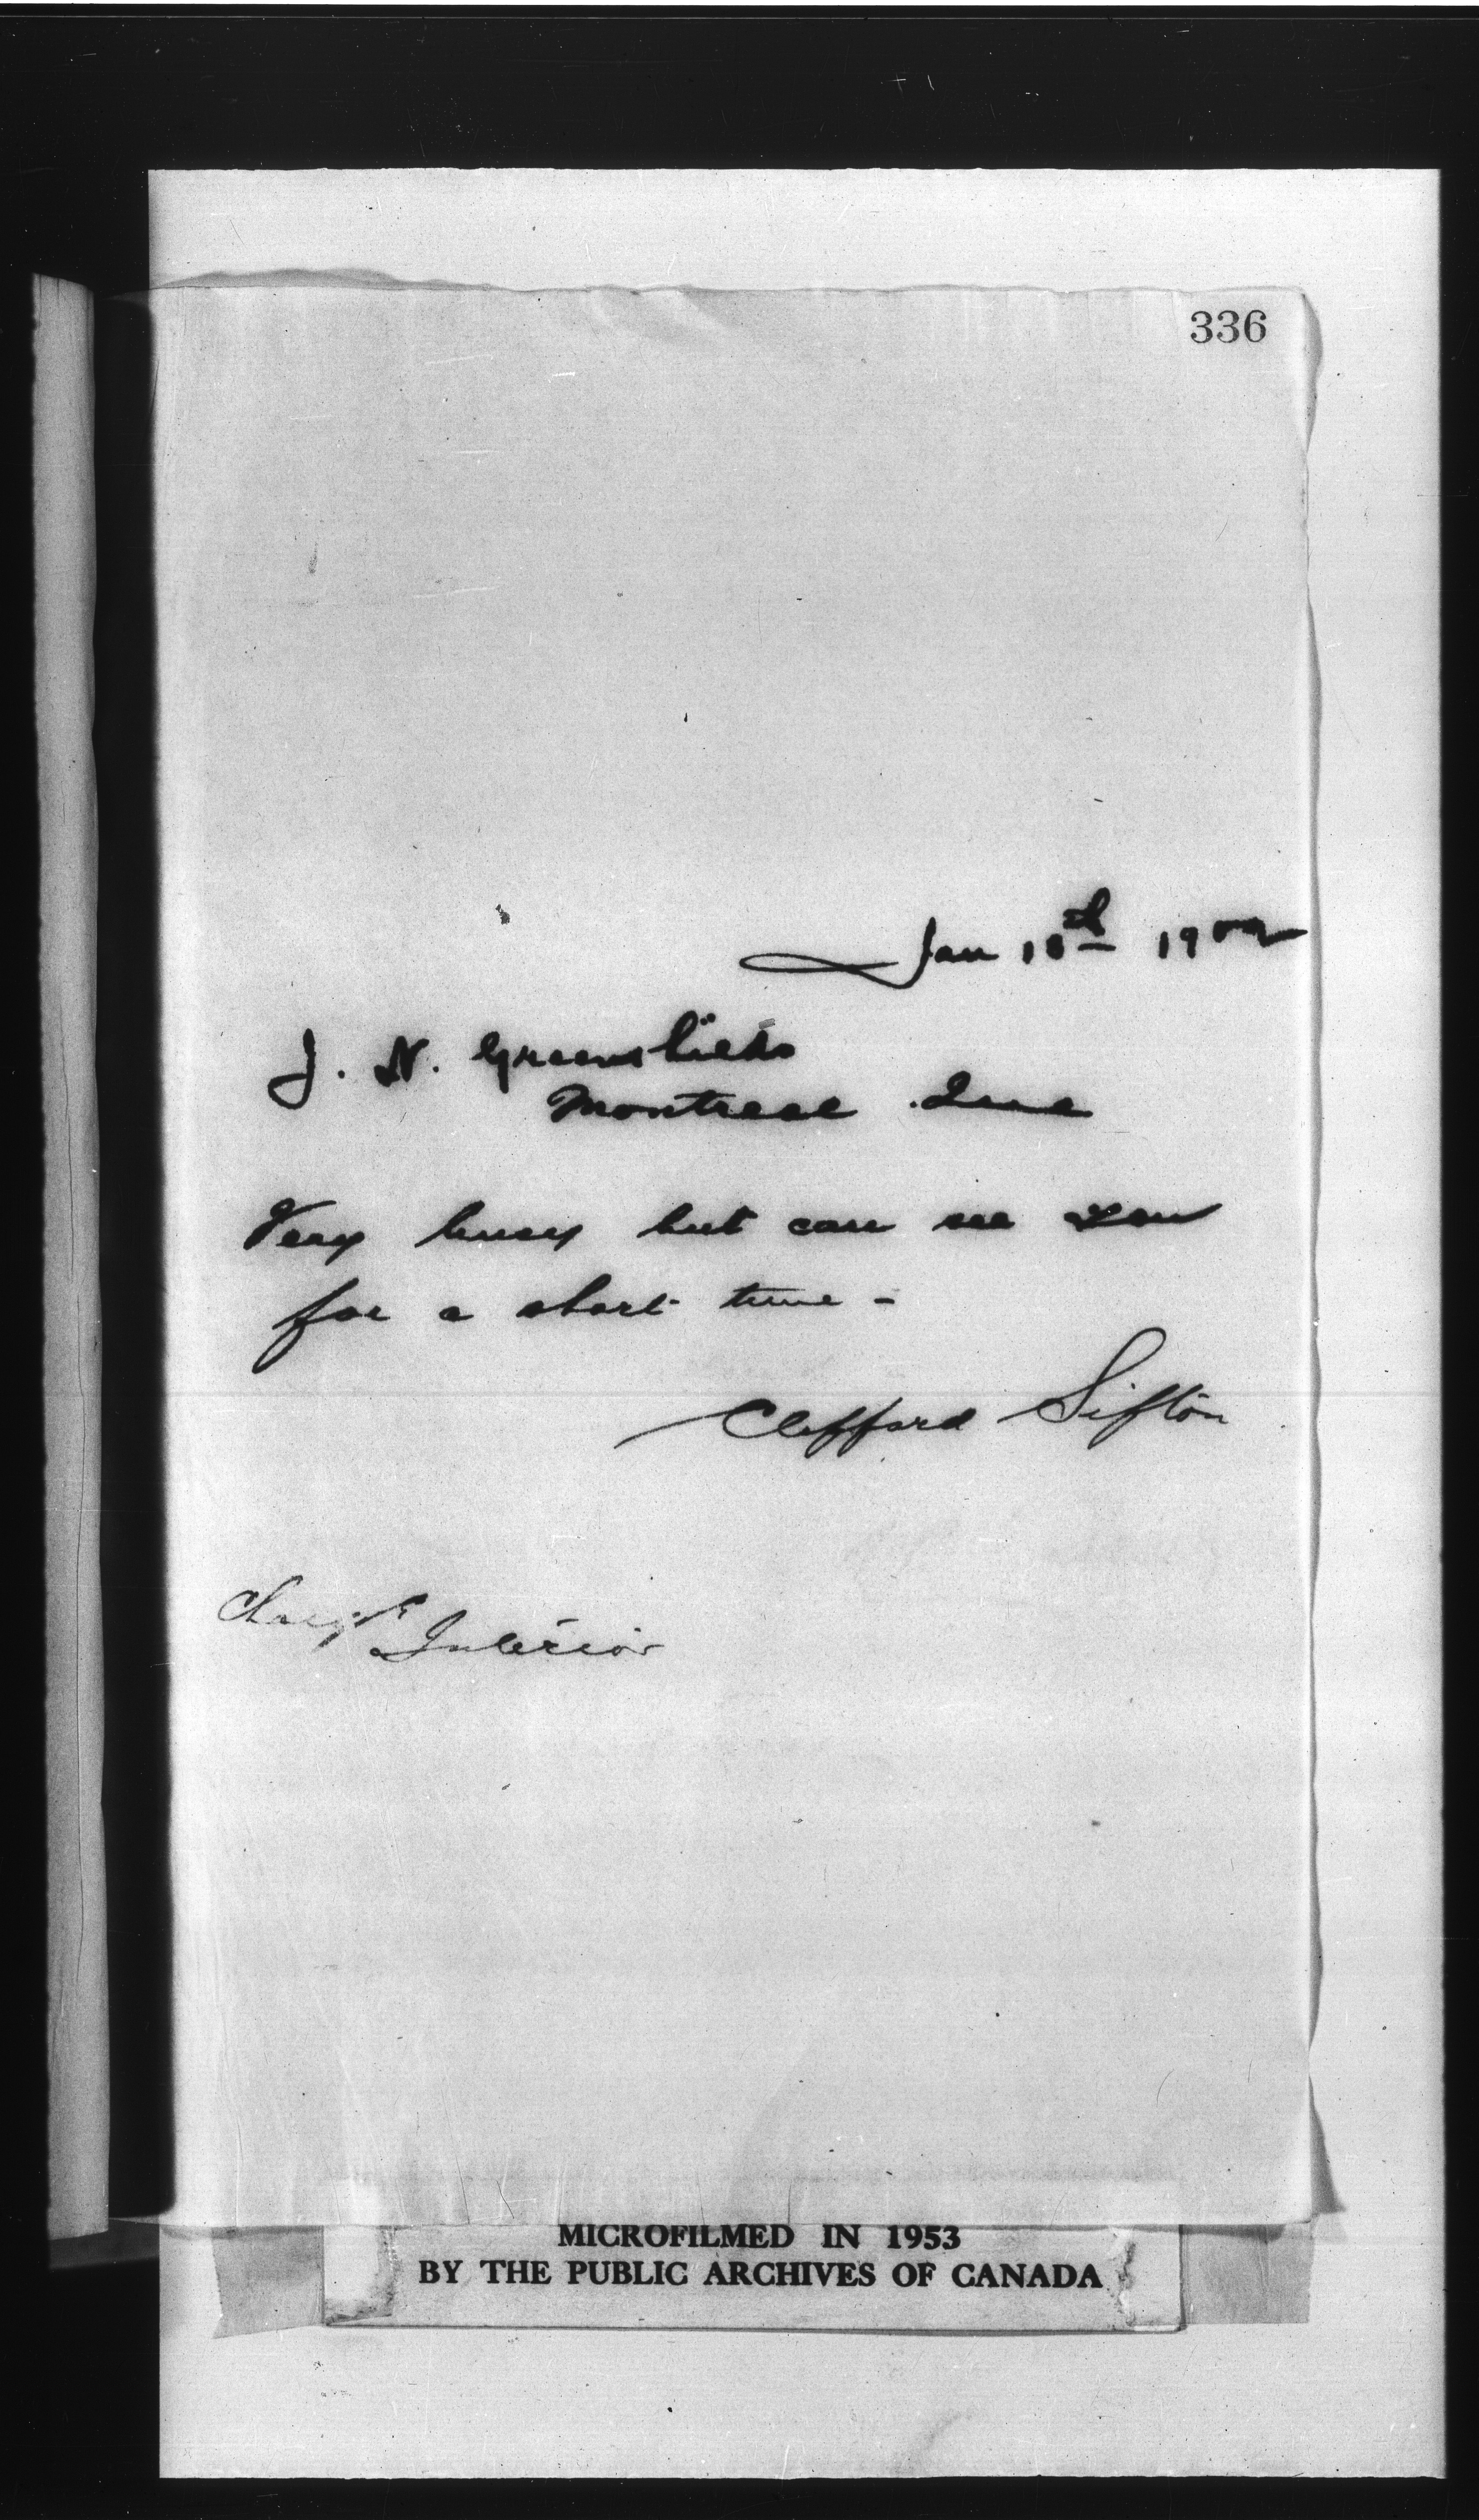 336
Jan 18th 1902
J. N. Greenshields
Montreal Que
Very busy but can see you
for a short time -
Clifford Sifton
Interior
MICROFILMED IN 1953
BY THE PUBLIC ARCHIVES OF CANADA